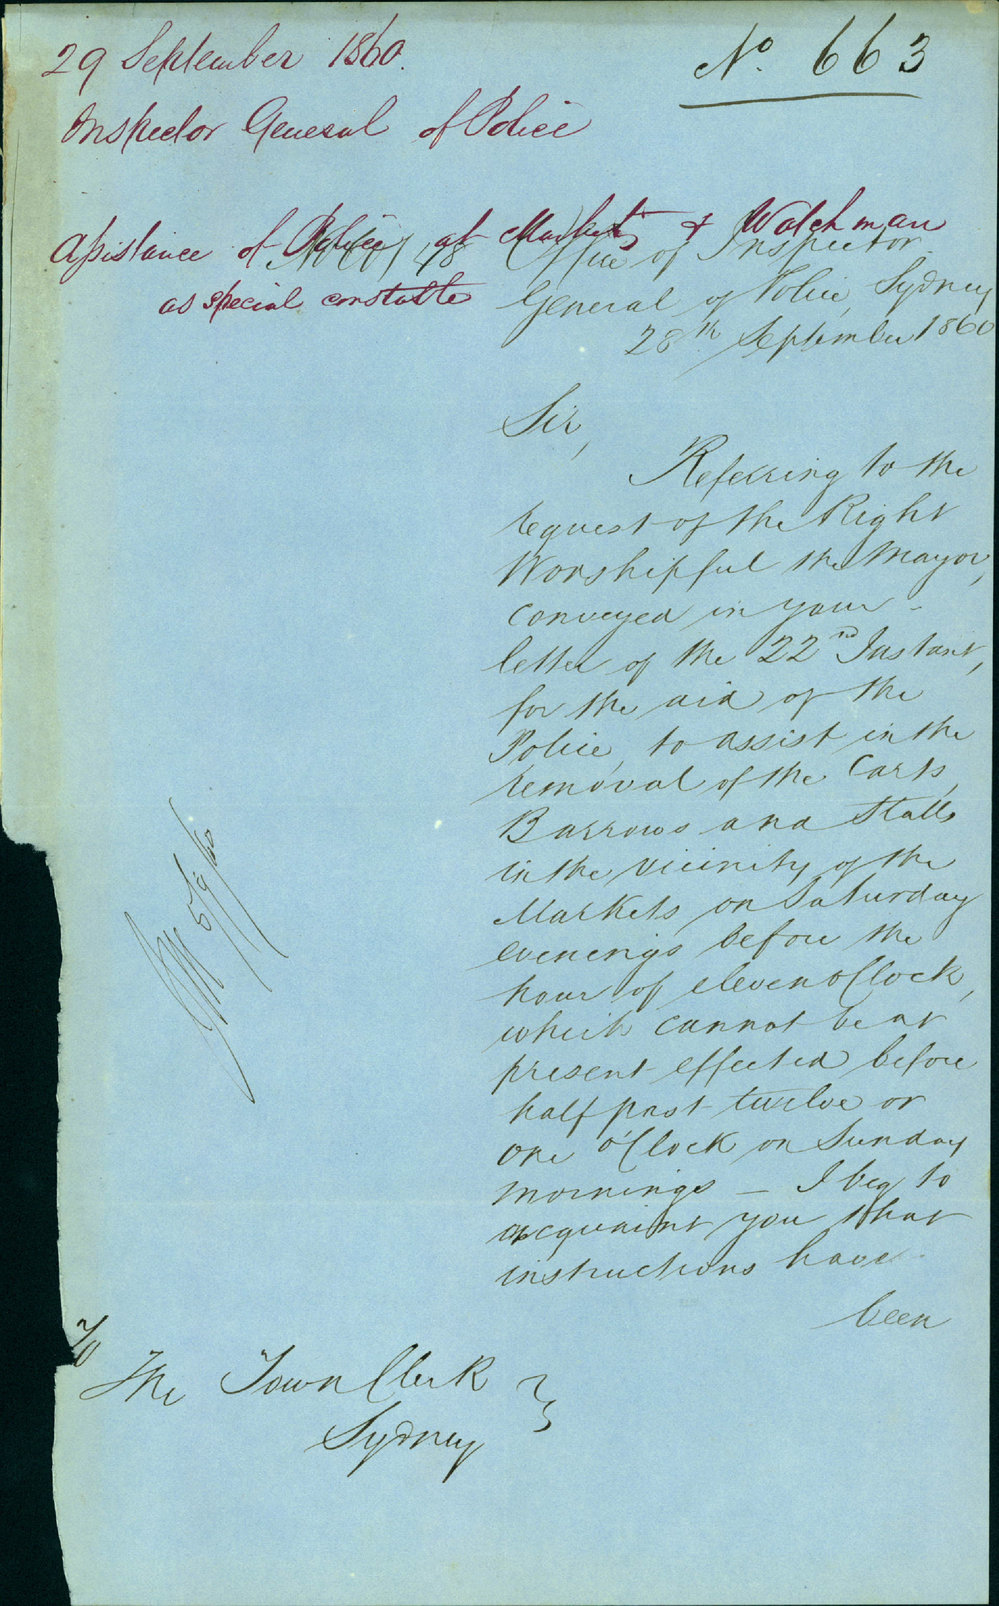 29 September 1860.
No. 663
Inspector General of Police
Assistance of Police at Markets & Watchman
as special constable
Office of Inspector
General of Police, Sydney
28th September 1860
Sir,
Referring to the
request of the Right
Worshipful the Mayor,
conveyed in your
letter of the 22nd Instant,
for the aid of the
Police, to assist in the
removal of the Carts,
Barrows and Stalls
in the vicinity of the
Markets on Saturday
evenings before the
hour of eleven o'Clock,
which cannot be at
present effected before
half past twelve or
one o'Clock on Sunday
mornings — I beg to
acquaint you that
instructions have
been
To
The Town Clerk
Sydney